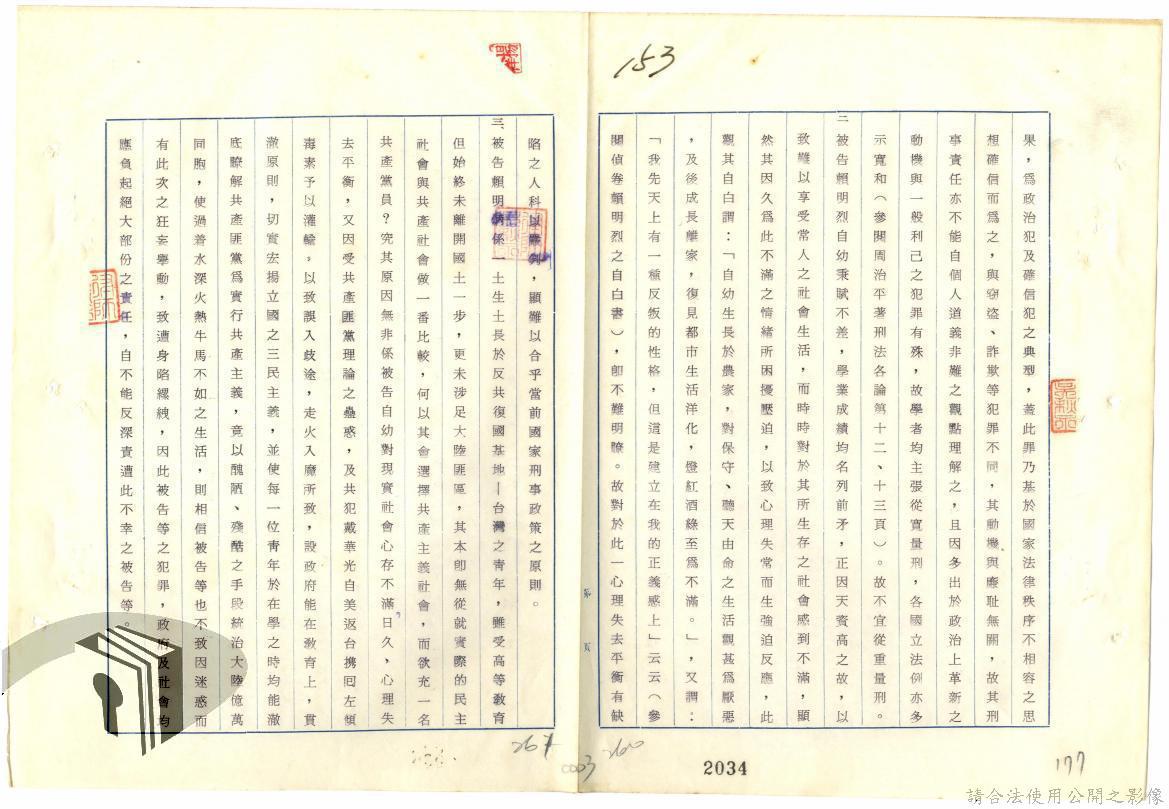 153
果，爲政治犯及確信犯之典型，蓋此罪乃基於國家法律秩序不相容之思
想確信而爲之，與竊盜、詐欺等犯罪不同，其動機與廉耻無關，故其刑
事責任亦不能自個人道義非難之觀點理解之，且因多出於政治上革新之
動機與一般利己之犯罪有殊，故學者均主張從寬量刑，各國立法例亦多
示寬和（參閱周治平著刑法各論第十二、十三頁）。故不宜從重量刑。
二被告賴明烈自幼秉賦不差，學業成績均名列前矛，正因天賚高之故，以
致難以享受常人之社會生活，而時時對於其所生存之社會感到不滿，顯
然其因久爲此不滿之情緒所困擾壓迫，以致心理失常而生強迫反應，此
觀其自白謂：「自幼生長於農家，對保守、聽天由命之生活觀甚爲厭惡
，及後成長離家，復見都市生活洋化，燈紅酒綠至爲不滿。」，又謂：
「我先天上有一種反叛的性格，但這是建立在我的正義感上」云云（參
閱偵卷賴明烈之自白書），卽不難明瞭。故對於此一心理失去平衡有缺
第　頁
陷之人科以嚴刑，顯難以合乎當前國家刑事政策之原則。
三、被告賴明係一土生土長於反共復國基地－台灣之青年，雖受高等教育
但始終未離開國土一步，更未涉足大陸匪區，其本卽無從就實際的民主
社會與共產社會做一番比較，何以其會選擇共產主義社會，而欲充一名
共產黨員？究其原因無非係被告自幼對現實社會心存不滿，日久，心理失
去平衡，又因受共產匪黨理論之蠱惑，及共犯戴華光自美返台携囘左傾
毒素予以灌輸，以致誤入歧途，走火入魔所致，設政府能在敎育上，貫
澈原則，切實宏揚立國之三民主義，並使每一位靑年於在學之時均能澈
底瞭解共產匪黨爲實行共產主義，竟以醜陋、殘酷之手段統治大陸億萬
同胞，使過着水深火熱牛馬不如之生活，則相信被告等也不致因迷惑而
有此次之狂妄舉動，致遭身陷縲絏，因此被告等之犯罪，政府及社會均
應負起絕大部份之責任，自不能反深責遭此不幸之被告等。
律師
267
260
0003
2034
177
請合法使用公開之影像